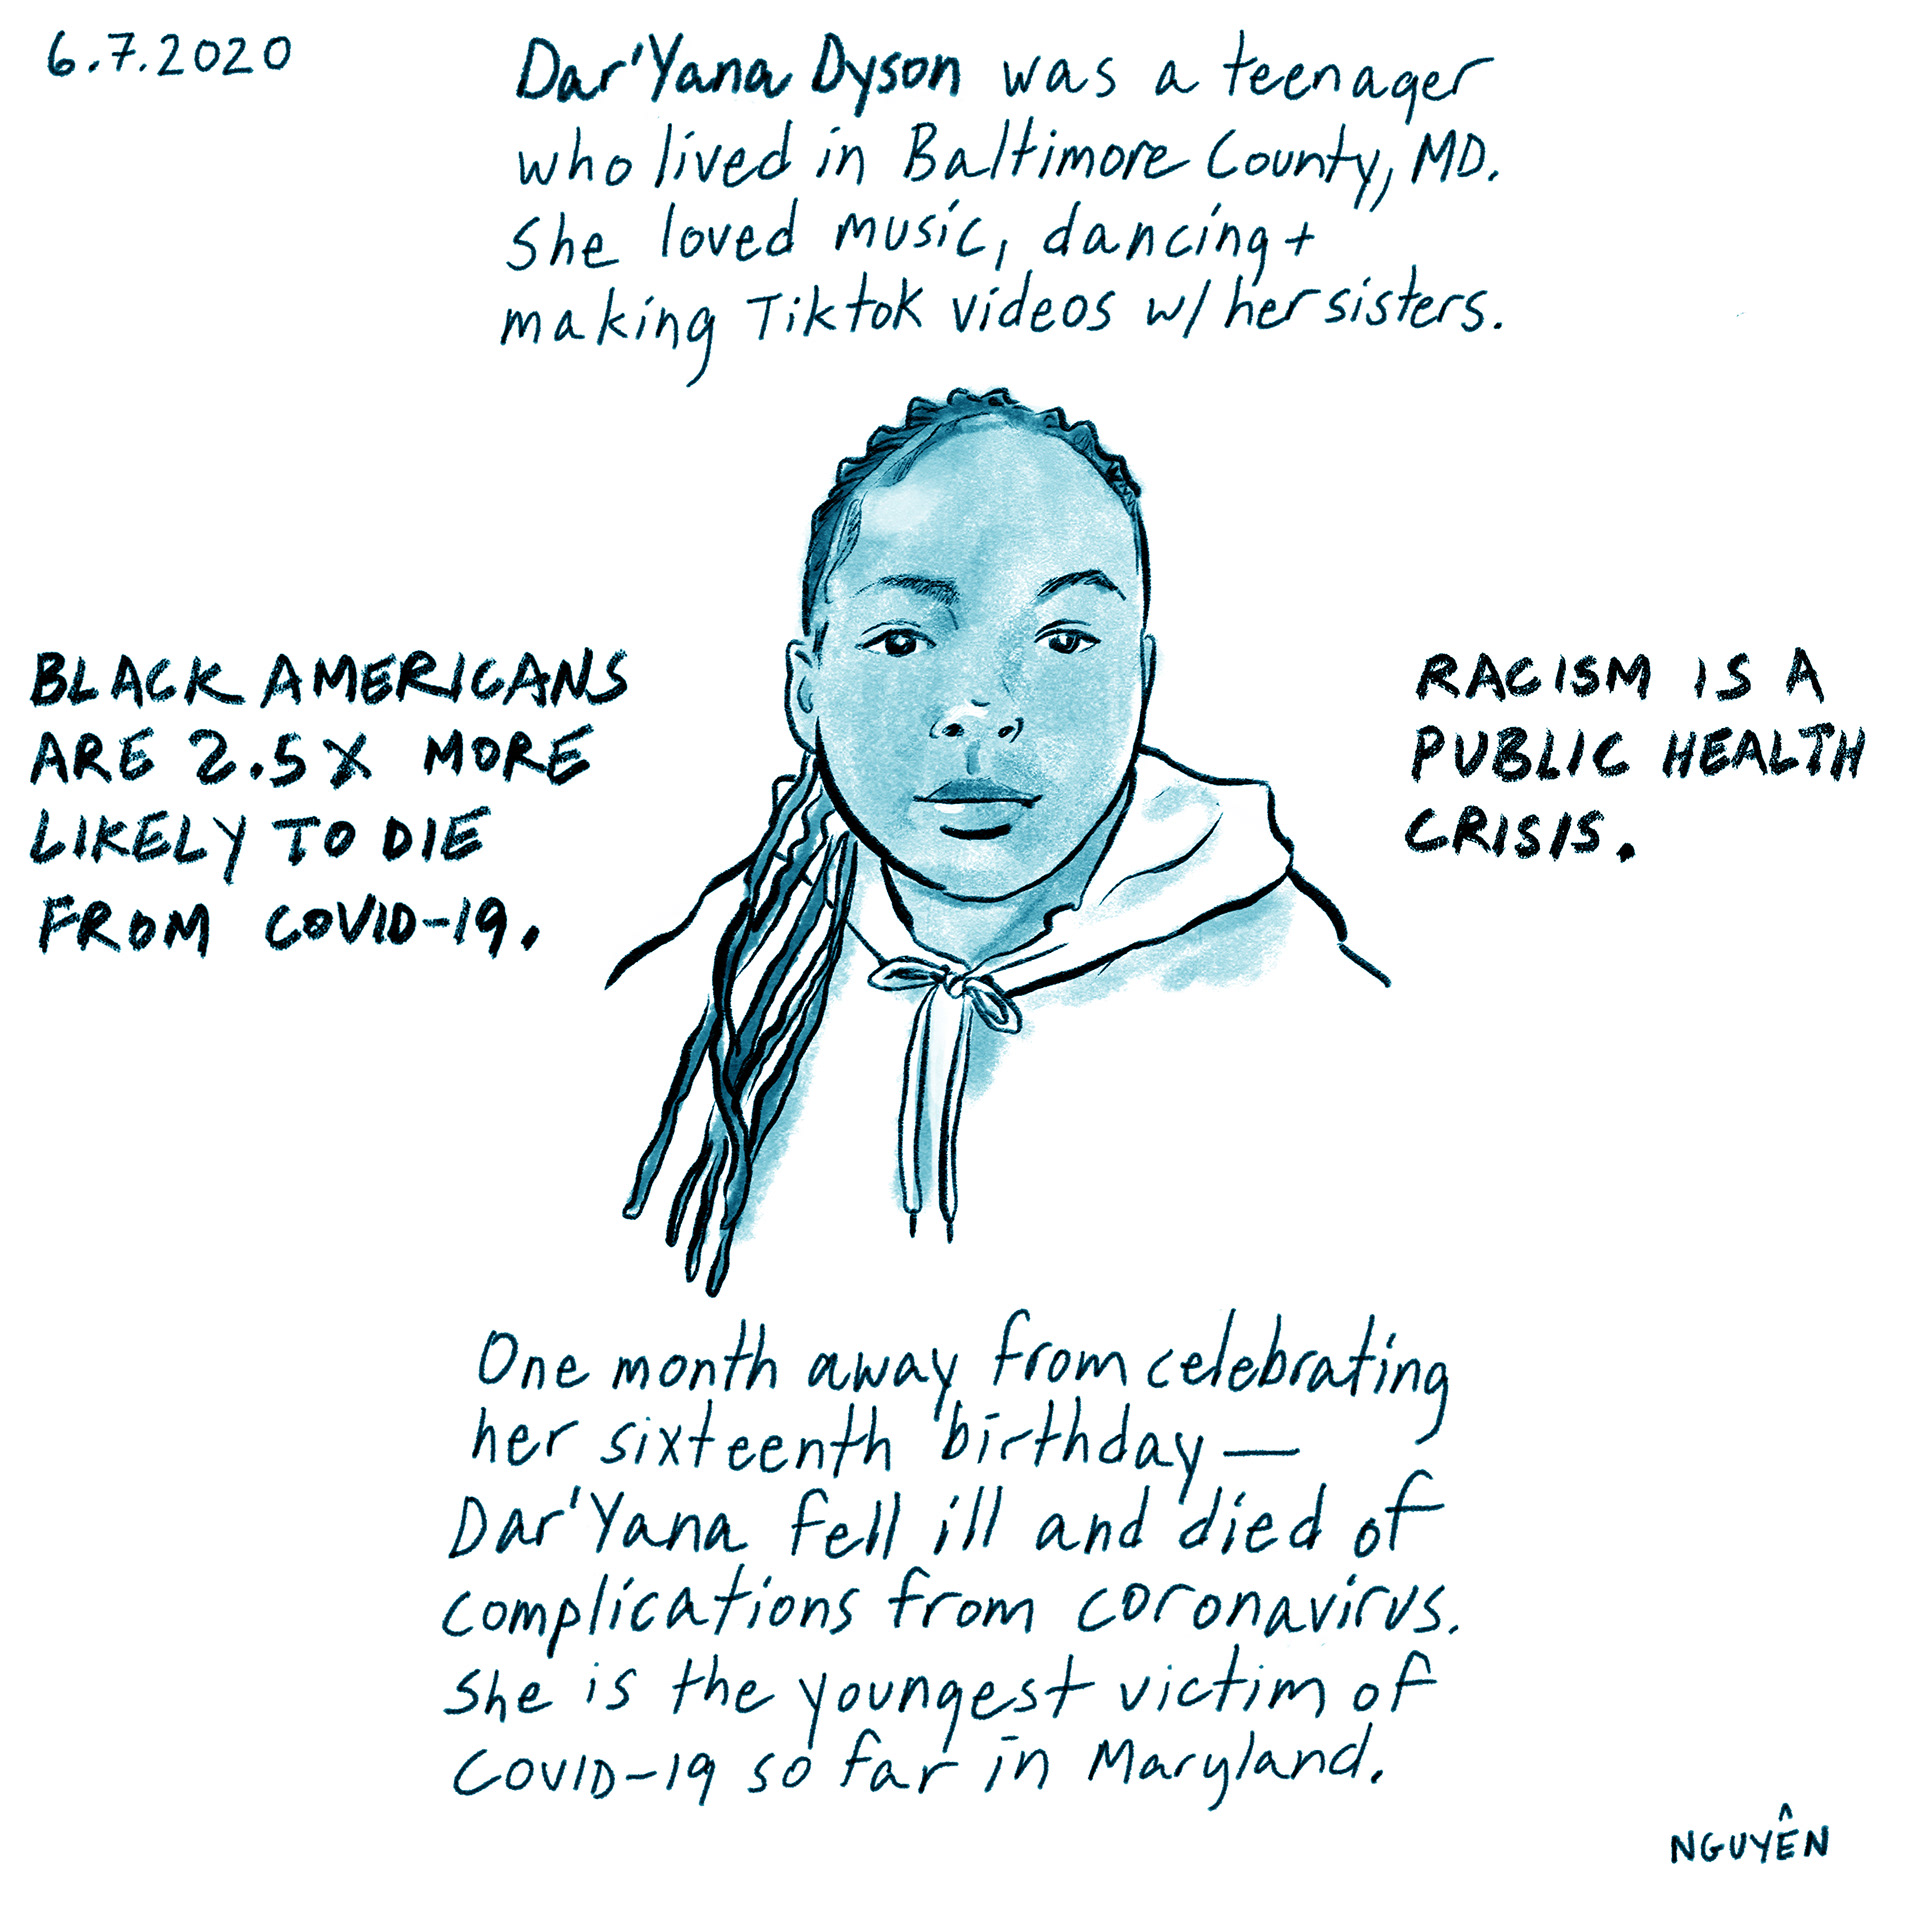 6.7.2020
Dar'Yana Dyson was a teenager
who lived in Baltimore County, MD.
She loved music, dancing +
making Tiktok videos w/ her sisters.
BLACK AMERICANS
ARE 2.5X MORE
LIKELY TO DIE
FROM COVID-19.
RACISM IS A
PUBLIC HEALTH
CRISIS.
One month away from celebrating
her sixteenth birthday —
Dar'Yana fell ill and died of
complications from coronavirus.
She is the youngest victim of
COVID-19 so far in Maryland.
NGUYÊN